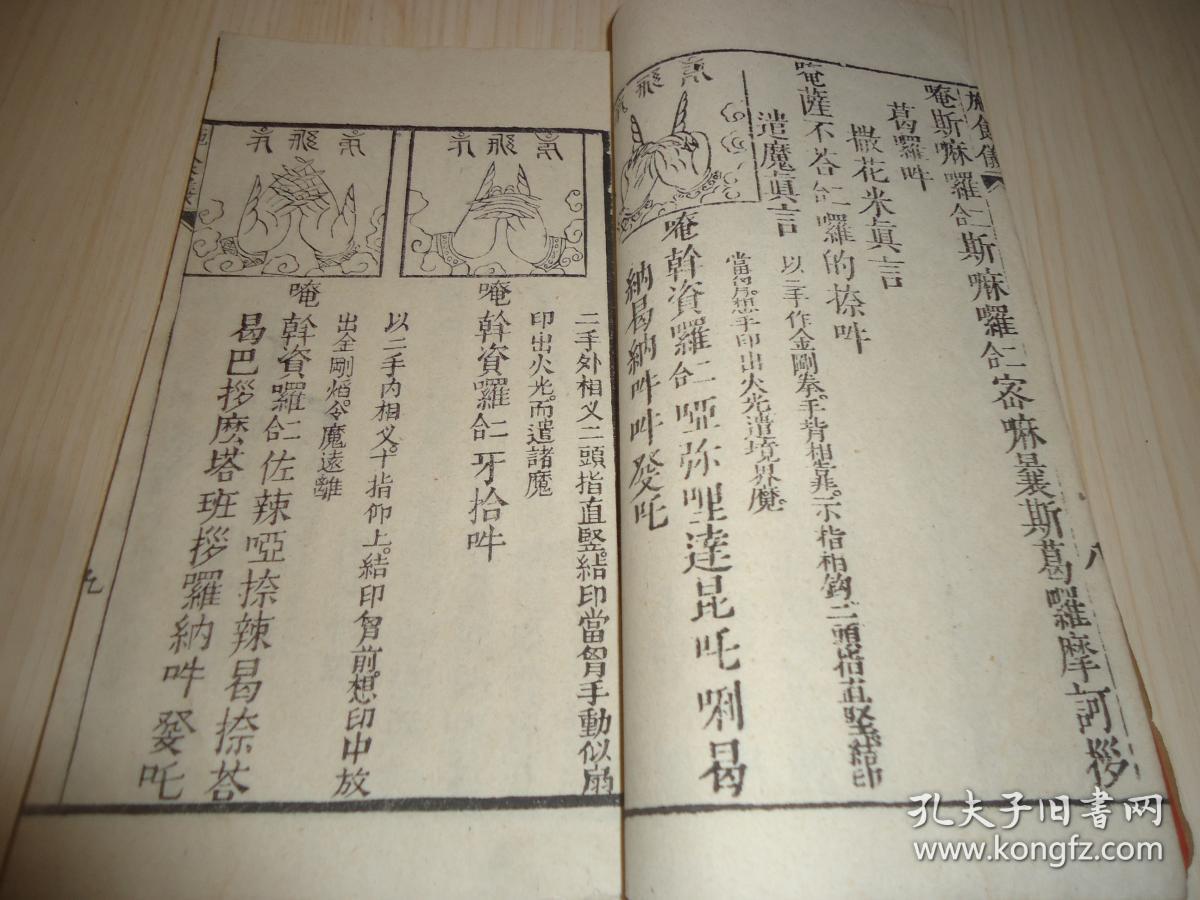 施食儀
八
唵斯嘛囉合二斯嘛囉合二宻嘛曩斯葛囉摩訶拶
葛囉吽
撒花米眞言
唵薩不荅合二囉的捺吽
遣魔眞言
以二手作金剛拳。手背相靠。示指相鈎。二頭指直竪。結印
當胷。想手印出火光遣境界魔。
唵斡資囉合二啞弥哩達昆吒唎曷
納曷納吽吽發吒
二手外相义二頭指直竪。結印當胷手動似扇
印出火光。而遣諸魔
唵斡資囉合二牙拾吽
以二手内相义。十指仰上。結印胷前。想印中放
出金剛熖。令魔遠離
唵斡資囉合二佐辣啞捺辣曷捺荅
曷巴拶麽塔班拶囉納吽發吒
九
孔夫子旧书网
www.kongfz.com